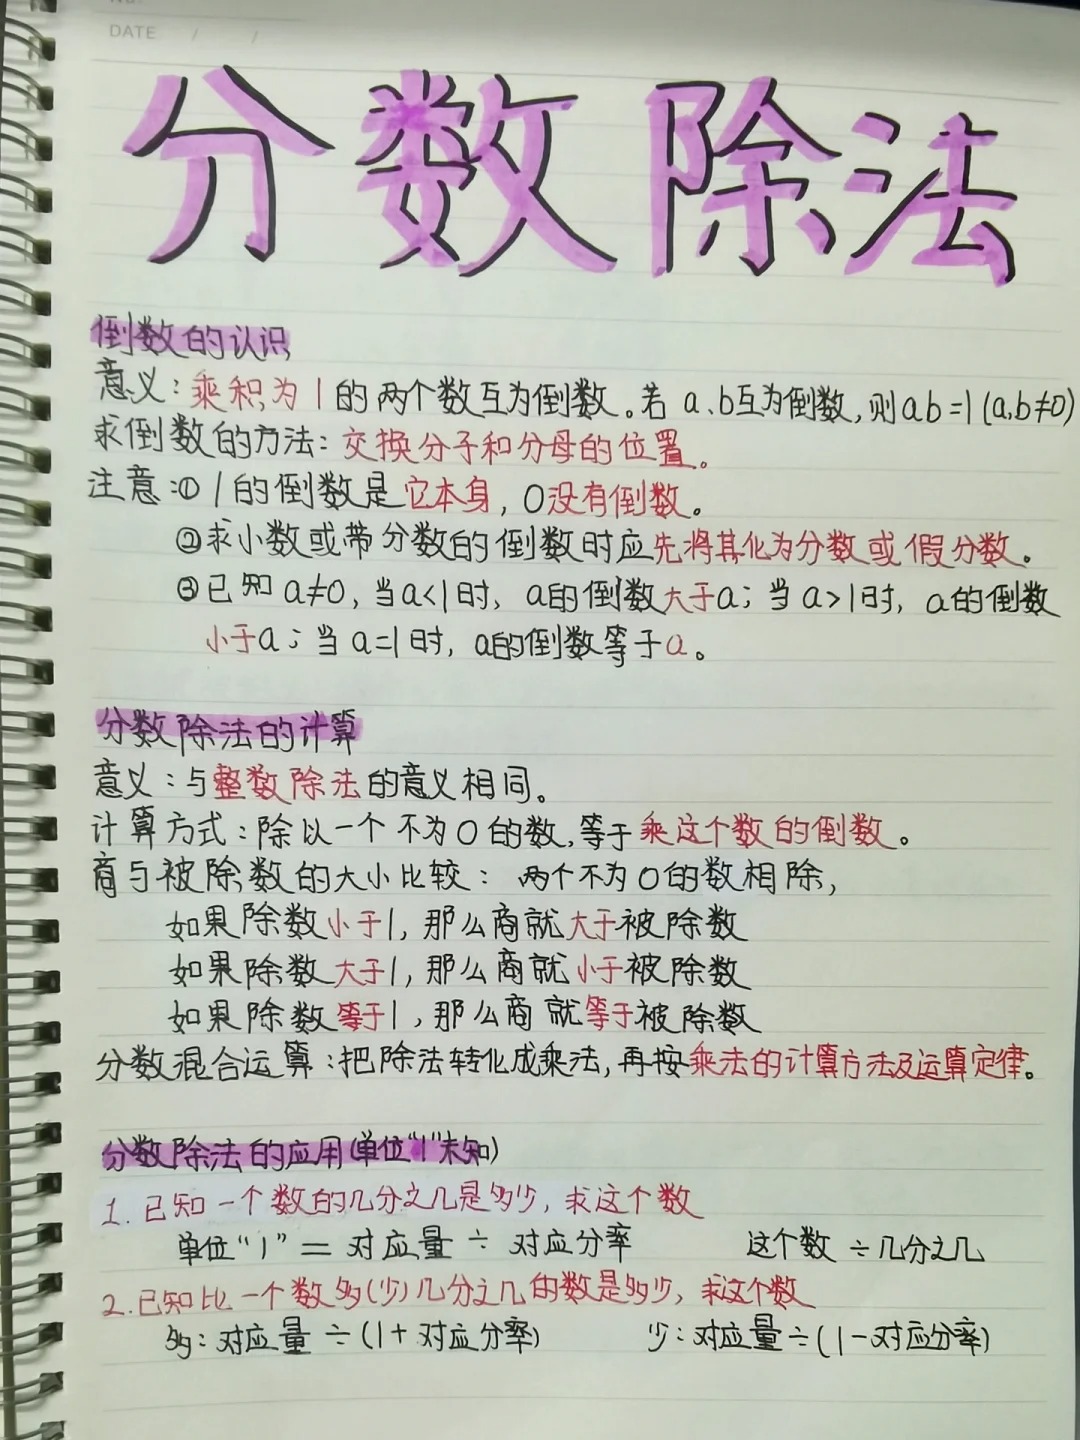 DATE / /
分数除法
倒数的认识
意义:乘积为1的两个数互为倒数。若a、b互为倒数,则ab=1(a,b≠0)
求倒数的方法:交换分子和分母的位置。
注意:①1的倒数是它本身,0没有倒数。
②求小数或带分数的倒数时应先将其化为分数或假分数。
③已知a≠0,当a<1时,a的倒数大于a;当a>1时,a的倒数
小于a;当a=1时,a的倒数等于a。
分数除法的计算
意义:与整数除法的意义相同。
计算方式:除以一个不为0的数,等于乘这个数的倒数。
商与被除数的大小比较:两个不为0的数相除,
如果除数小于1,那么商就大于被除数
如果除数大于1,那么商就小于被除数
如果除数等于1,那么商就等于被除数
分数混合运算:把除法转化成乘法,再按乘法的计算方法及运算定律。
分数除法的应用(单位“1”未知)
1.已知一个数的几分之几是多少,求这个数
单位“1”=对应量÷对应分率 这个数÷几分之几
2.已知比一个数多(少)几分之几的数是多少,求这个数
多:对应量÷(1+对应分率) 少:对应量÷(1-对应分率)